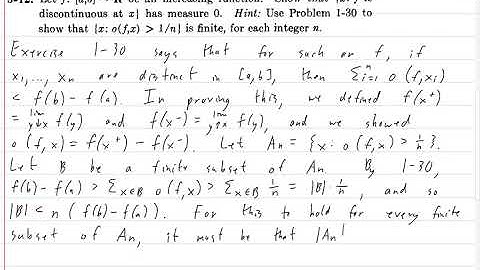 discontinuous at x} has measure 0. Hint: Use Problem 1-30 to
show that {x: o(f,x) > 1/n} is finite, for each integer n.
Exercise 1-30 says that for such an f, if
x₁, ..., xₙ are distinct in [a,b], then Σⁿᵢ₌₁ o(f,xᵢ)
< f(b) - f(a). In proving this, we defined f(x⁺)
= lim y↓x f(y) and f(x⁻) = lim y↑x f(y), and we showed
o(f,x) = f(x⁺) - f(x⁻). Let An = {x: o(f,x) > 1/n}.
Let B be a finite subset of An. By 1-30,
f(b) - f(a) > Σx∈B o(f,x) > Σx∈B 1/n = |B| 1/n, and so
|B| < n(f(b) - f(a)). For this to hold for every finite
subset of An, it must be that |An|